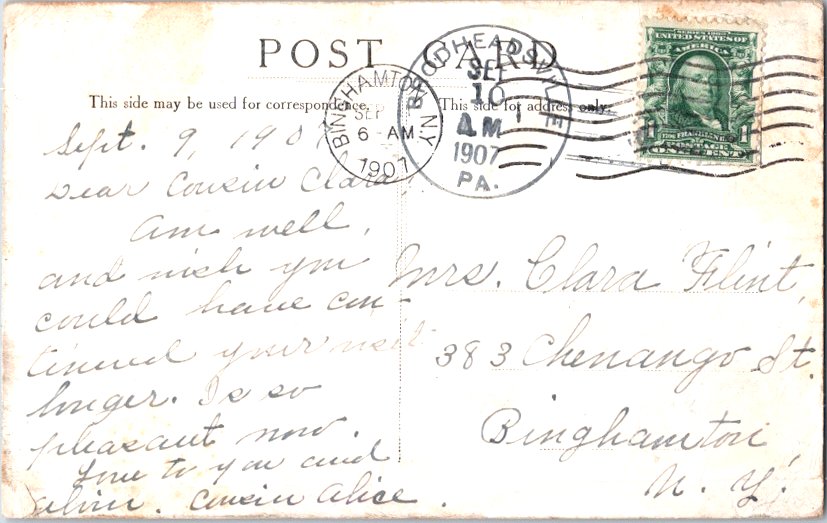 POST CARD
This side may be used for correspondence.
This side for address only.
BRODHEADSVILLE
SEP
10
AM
1907
PA.
BINGHAMTON N.Y.
SEP
6 - AM
1907
SERIES 1902
UNITED STATES OF
AMERICA
1 1
FRANKLIN
POSTAGE
ONE CENT
Sept. 9, 190
Dear Cousin Clara
Am well,
and wish you
could have con-
tinued your visit
longer. Is so
pleasant now.
Love to you and
Alvin. Cousin Alice.
Mrs. Clara Flint,
383 Chenango St.
Binghamton
N. Y.